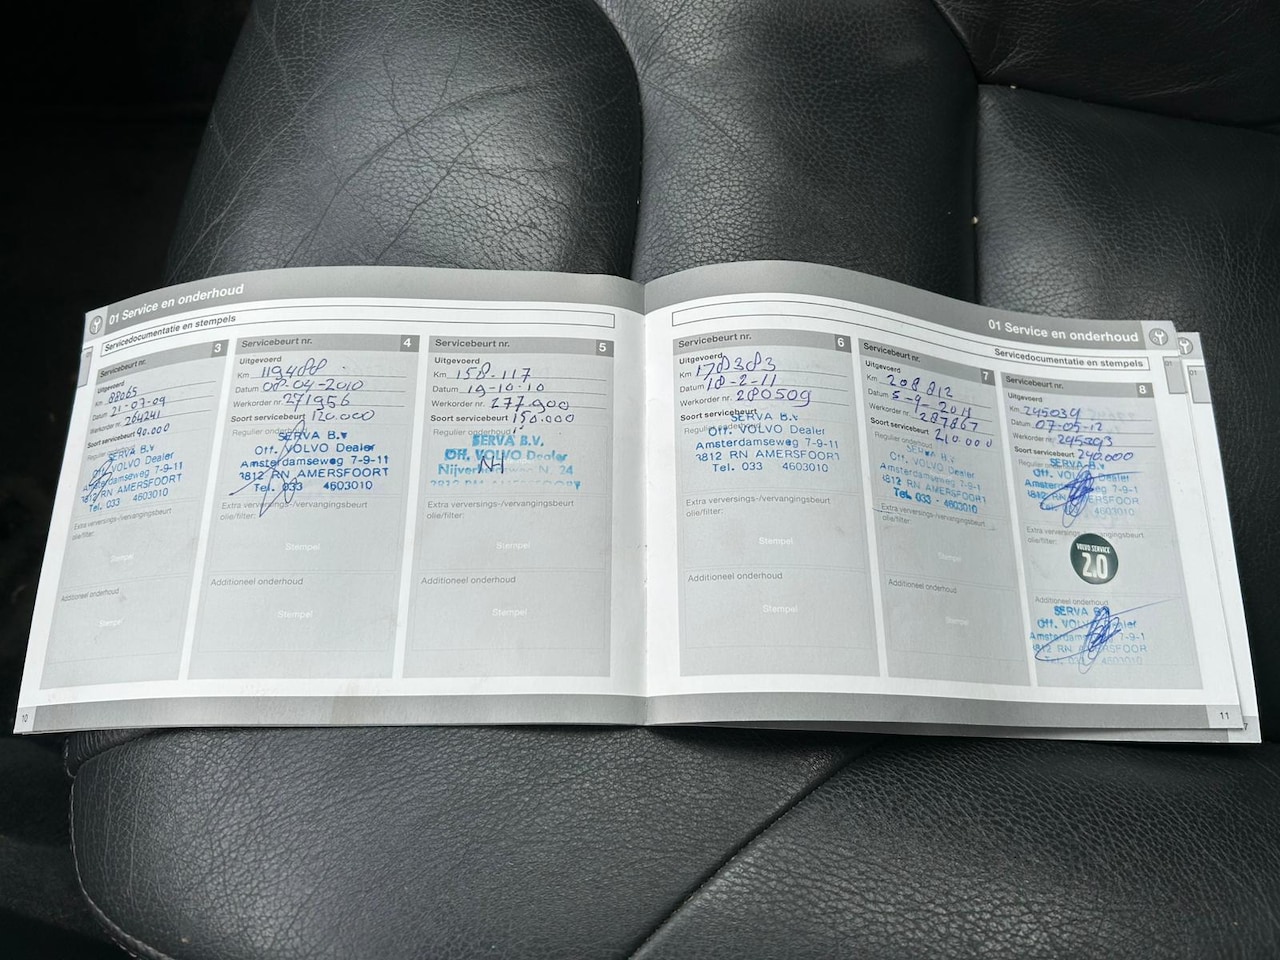 01 Service en onderhoud
Servicedocumentatie en stempels
Servicebeurt nr. 3
Uitgevoerd
Km 88065
Datum 21-07-09
Werkorder nr. 264241
Soort servicebeurt 90.000
Regulier onderhoud
SERVA B.V
Off. VOLVO Dealer
Amsterdamseweg 7-9-11
3812 RN AMERSFOORT
Tel. 033 4603010
Extra verversings-/vervangingsbeurt
olie/filter:
Stempel
Additioneel onderhoud
Stempel
10
Servicebeurt nr. 4
Uitgevoerd
Km 119488
Datum 08-04-2010
Werkorder nr. 271956
Soort servicebeurt 120.000
Regulier onderhoud
SERVA B.V
Off. VOLVO Dealer
Amsterdamseweg 7-9-11
3812 RN AMERSFOORT
Tel. 033 4603010
Extra verversings-/vervangingsbeurt
olie/filter:
Stempel
Additioneel onderhoud
Stempel
Servicebeurt nr. 5
Uitgevoerd
Km 158.117
Datum 19-10-10
Werkorder nr. 277.900
Soort servicebeurt 150.000
Regulier onderhoud
SERVA B.V.
Off. VOLVO Dealer
N. 24
AMERSFOORT
Extra verversings-/vervangingsbeurt
olie/filter:
Stempel
Additioneel onderhoud
Stempel
01 Service en onderhoud
Servicedocumentatie en stempels
Servicebeurt nr. 6
Uitgevoerd
Km 178383
Datum 18-2-11
Werkorder nr. 280509
Soort servicebeurt
Regulier onderhoud
SERVA B.V.
Off. VOLVO Dealer
Amsterdamseweg 7-9-11
3812 RN AMERSFOORT
Tel. 033 4603010
Extra verversings-/vervangingsbeurt
olie/filter:
Stempel
Additioneel onderhoud
Stempel
Servicebeurt nr. 7
Uitgevoerd
Km 208812
Datum 5-9-2011
Werkorder nr. 287867
Soort servicebeurt 210.000
Regulier onderhoud
SERVA B.V.
Off. VOLVO Dealer
Amsterdamseweg 7-9-11
3812 RN AMERSFOORT
Tel. 033 - 4603010
Extra verversings-/vervangingsbeurt
olie/filter:
Stempel
Additioneel onderhoud
Stempel
Servicebeurt nr. 8
Uitgevoerd
Km 245039
Datum 07-05-12
Werkorder nr. 295393
Soort servicebeurt 240.000
Regulier onderhoud
SERVA B.V
Off. VOLVO Dealer
7-9-1
4603010
Extra verversings-/vervangingsbeurt
olie/filter:
VOLVO SERVICE
2.0
Additioneel onderhoud
SERVA B.V
Off. VOLVO Dealer
7-9-1
3812 RN AMERSFOOR
Tel. 033 4603010
11